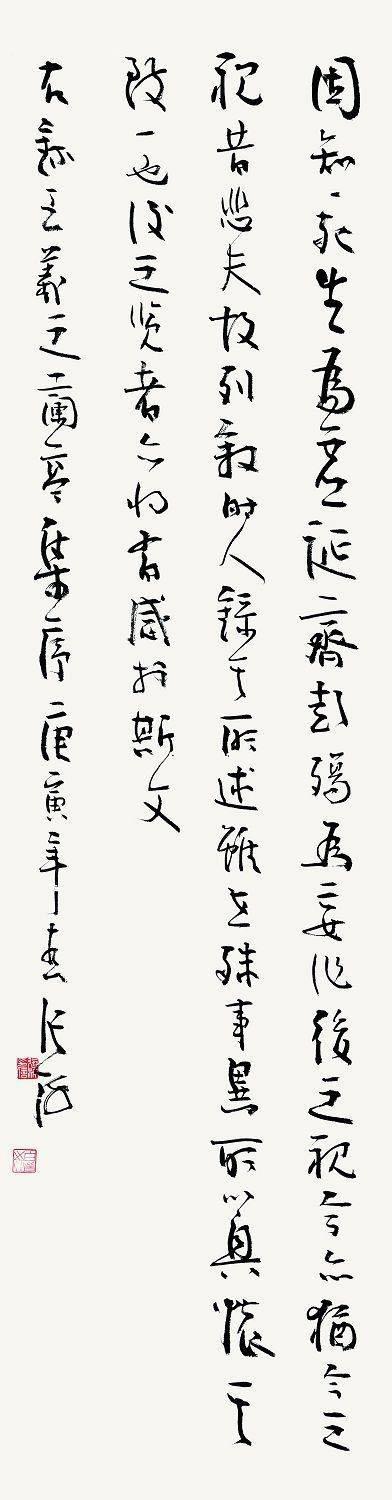 固知一死生為虛誕齊彭殤為妄作後之視今亦猶今之
視昔悲夫故列叙時人錄其所述雖世殊事異所以興懷其
致一也後之覽者亦將有感於斯文
右錄王羲之蘭亭集序庚寅年春